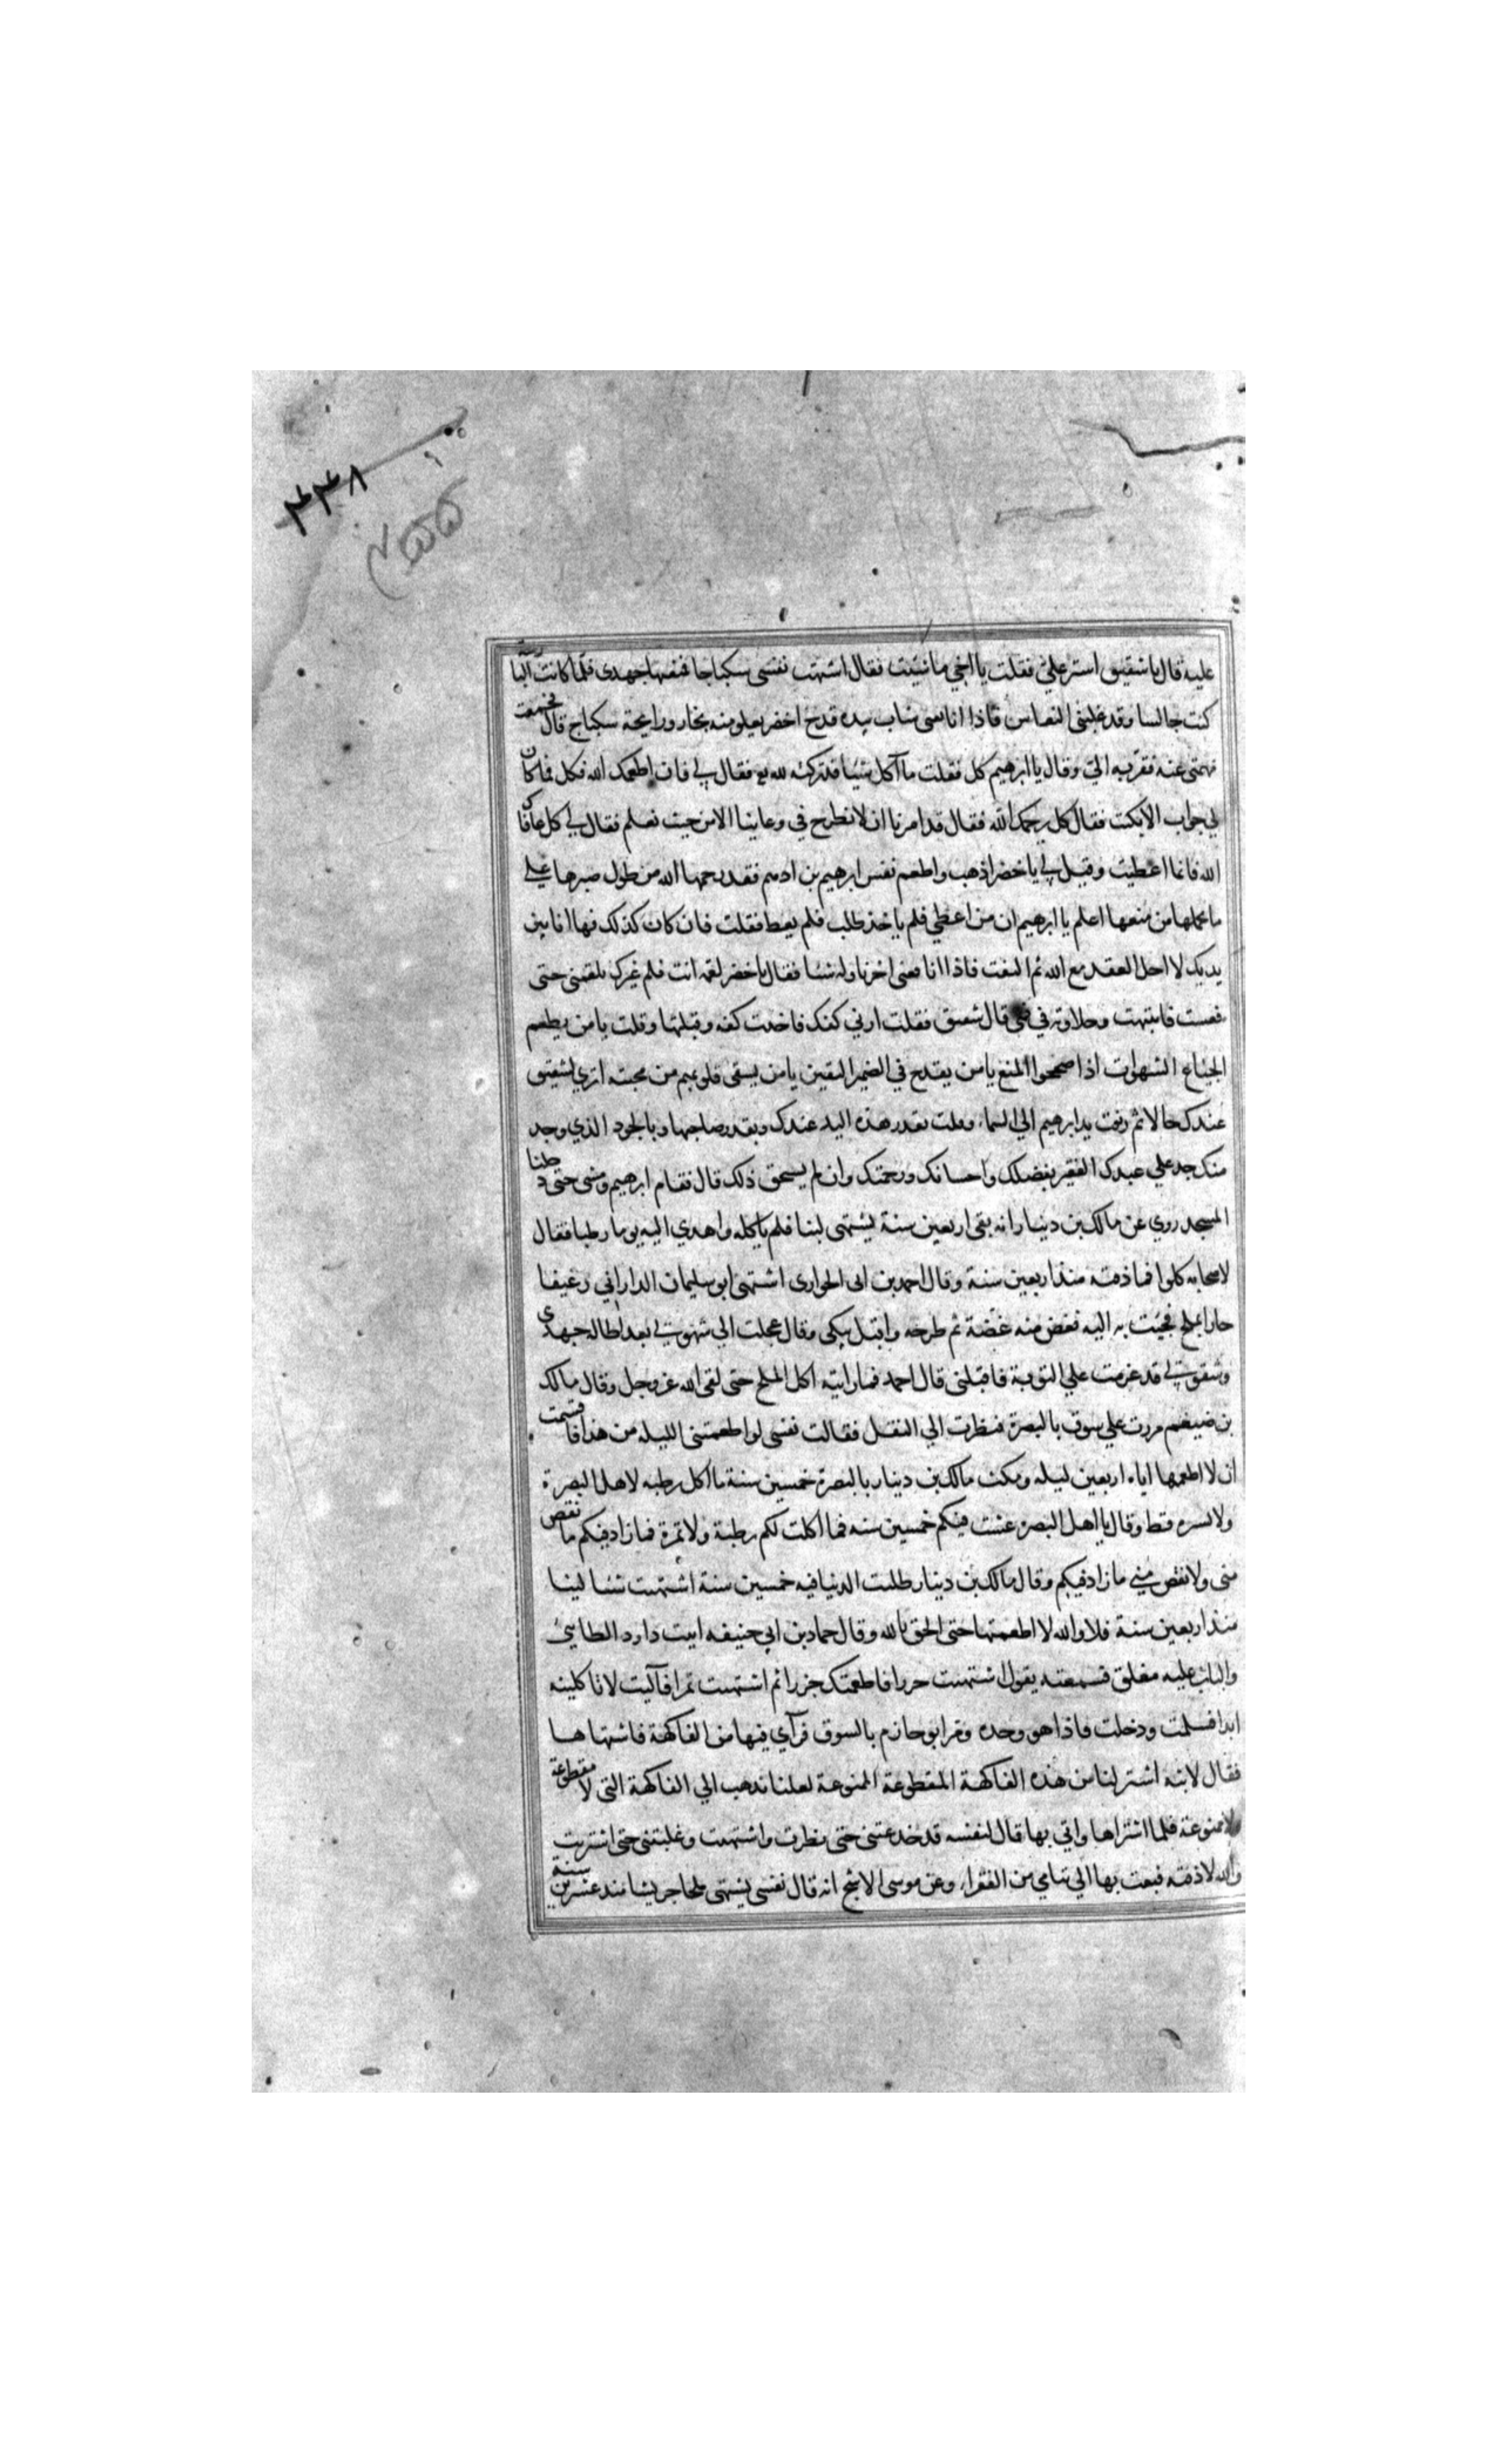 ٤٣٨
عليه قال يا شقيق استر علي فقلت يا اخي ما شيت فقال اشتهت نفسي سكباجا فمنعتها جهدي فلما كانت البارحة
كنت جالسا وقد غلبني النعاس فاذا انا بفتى شاب بيده قدح اخضر يعلو منه بخار ورايحة سكباج قال فجمعت
نهمتي عنه فقربه الي وقال يا ابرهيم كل فقلت ما آكل شيا قد تركته لله فقال لي فان اطعمك الله فكل فما كان
لي جواب الا بكيت فقال كل رحمك الله فقال قد امرنا ان لا نطرح في وعاينا الا من حيث نعلم فقال لي كل عافاك
الله فانما اعطيت وقيل لي يا خضر اذهب واطعم نفس ابرهيم بن ادهم فقد رحمها الله من طول صبرها علي
ما يحملها من منعها اعلم يا ابرهيم ان من اعطي فلم ياخذ طلب فلم يعط فقلت فان كان كذلك فها انا بين
يديك لا احل العقد مع الله ثم التفت فاذا انا بفتى اخر ناوله شيا فقال يا خضر لقمه انت فلم يزل يلقمني حتى
نعست فانتبهت وحلاوته في فمي قال شقيق فقلت ارني كفك فاخذت كفه وقبلتها وقلت يا من يطعم
الجياع الشهوات اذا صححوا المنع يا من يقدح في الضمير اليقين يا من يسقي قلوبهم من محبته اتري لشقيق
عندك حالا ثم رفعت يد ابرهيم الي السماء وقلت بقدر هذه اليد عندك وبقدر صاحبها وبالجود الذي وجد
منك جد علي عبدك الفقير بفضلك واحسانك ورحمتك وان لم يستحق ذلك قال فقام ابرهيم ومشى حتى دخلنا
المسجد روي عن مالك بن دينار انه بقي اربعين سنة يشتهي لبنا فلم ياكله واهدي اليه يوما رطبا فقال
لاصحابه كلوا فما ذقته منذ اربعين سنة وقال احمد بن ابي الحواري اشتهى ابو سليمان الداراني رغيفا
حارا بملح فجيت به اليه فعض منه عضة ثم طرحه واقبل يبكي وقال عجلت الي شهوتي بعد اطاله جهدي
وشقوتي قد عزمت علي التوبة فاقبلني قال احمد فما رايته اكل الملح حتى لقي الله عز وجل وقال مالك
بن ضيغم مررت علي سوق بالبصرة فنظرت الي البقل فقالت نفسي لو اطعمتني الليله من هذا فاقسمت
ان لا اطعمها اياه اربعين ليله ومكث مالك بن دينار بالبصرة خمسين سنة ما اكل رطبه لاهل البصرة
ولا بسره قط وقال يا اهل البصره عشت فيكم خمسين سنه فما اكلت لكم رطبة ولا تمرة فما زاد فيكم ما نقص
مني ولا نقص مني ما زاد فيكم وقال مالك بن دينار طلقت الدنيا فيه خمسين سنة اشتهت نفسي لبنا
منذ اربعين سنة فلا والله لا اطعمتها حتى الحق بالله وقال حماد بن ابي حنيفه اتيت داود الطائي
والباب عليه مغلق فسمعته يقول اشتهيت جزرا فاطعمتك جزرا ثم اشتهيت تمرا فآليت لا تاكلينه
ابدا فسلمت ودخلت فاذا هو وحده ومر ابو حازم بالسوق فرآي فيها من الفاكهة فاشتهاها
فقال لابنه اشتر لنا من هذه الفاكهة المقطوعة الممنوعة لعلنا نذهب الي الفاكهة التي لا مقطوعة
ولا ممنوعة فلما اشتراها واتي بها قال لنفسه قد خدعتني حتى نظرت واشتهيت وغلبتني حتى اشتريت
والله لا ذقته فبعث بها الي يتامي من الفقراء وعن موسى الاشج انه قال نفسي يشتهي ملحا جريشا منذ عشرين سنة